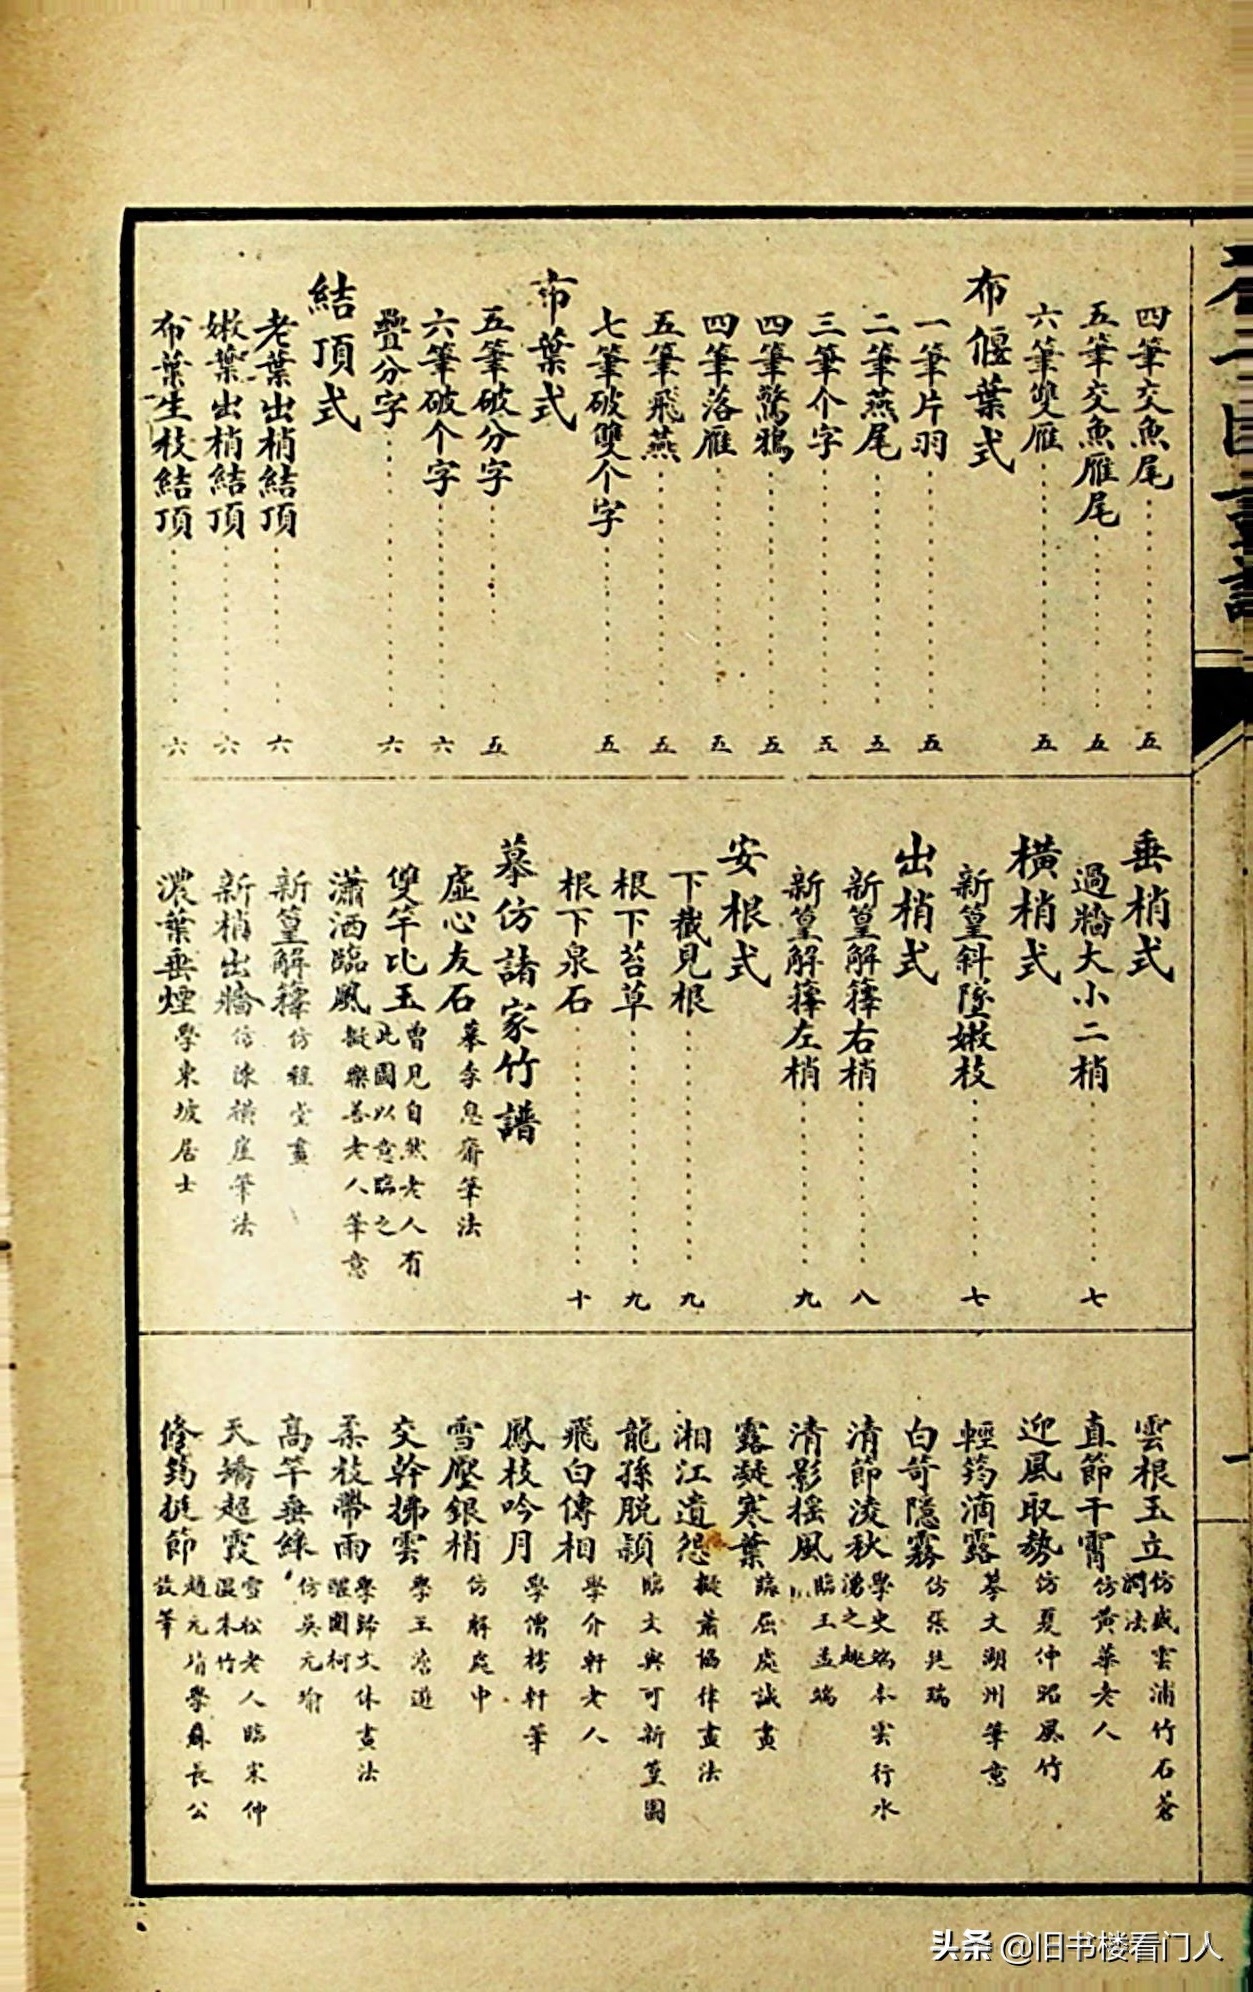 四筆交魚尾 五
五筆交魚雁尾 五
六筆雙雁 五
布偃葉式
一筆片羽 五
二筆燕尾 五
三筆个字 五
四筆驚鴉 五
四筆落雁 五
五筆飛燕 五
七筆破雙个字 五
布葉式
五筆破分字 五
六筆破个字 六
疊分字 六
結頂式
老葉出梢結頂 六
嫩葉出梢結頂 六
布葉生枝結頂 六
垂梢式
過牆大小二梢 七
橫梢式
新篁斜墜嫩枝 七
出梢式
新篁解籜右梢 八
新篁解籜左梢 九
安根式
下截見根 九
根下苔草 九
根下泉石 十
摹仿諸家竹譜
虛心友石 摹李息齋筆法
雙竿比玉 曾見自然老人有此圖以意臨之
瀟洒臨風 擬樂善老人筆意
新篁解籜 仿程堂畫
新梢出牆 仿陳橫崖筆法
濃葉垂煙 學東坡居士
雲根玉立 仿盛雲浦竹石蒼潤法
直節干霄 仿黃華老人
迎風取勢 仿夏仲昭風竹
輕筠滴露 摹文湖州筆意
白笴隱霧 仿張芝瑞
清節淩秋 學史端本雲行水湧之趣
清影搖風 臨王孟端
露凝寒葉 臨屈處誠畫
湘江遺怨 擬蕭協律畫法
龍孫脫穎 臨文與可新篁圖
飛白傳相 學介軒老人
鳳枝吟月 學僧樗軒筆
雪壓銀梢 仿解處中
交幹拂雲 學王澹遊
柔枝帶雨 學歸文休畫法
高竿垂綠 仿吳元瑜
天矯超霞 雪松老人臨宋仲溫朱竹
修筠挺節 趙元靖學蘇長公放筆
头条 @旧书楼看门人